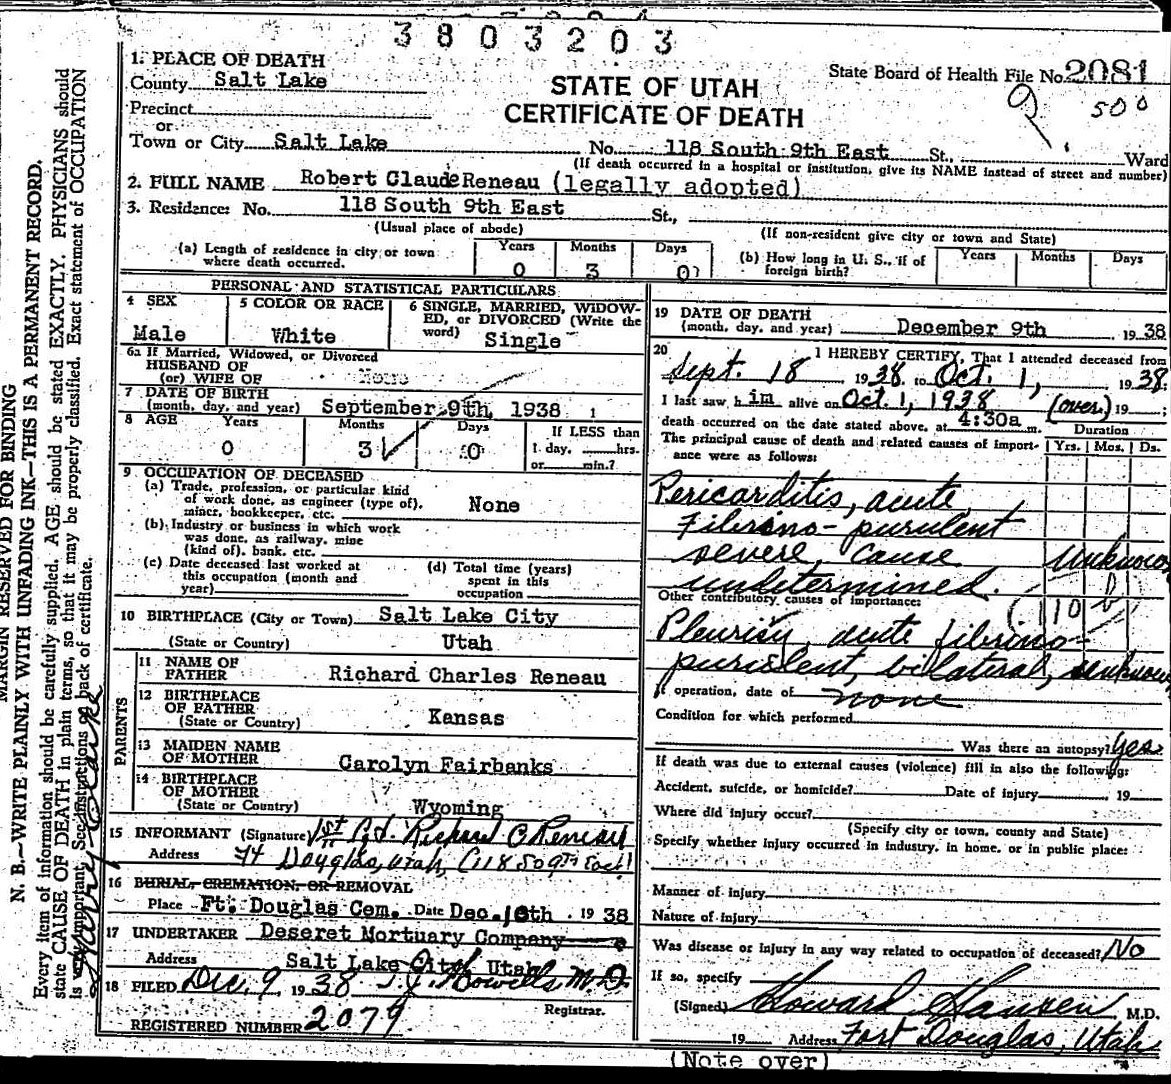 3803203
1. PLACE OF DEATH
County Salt Lake
State Board of Health File No. 2081
STATE OF UTAH
CERTIFICATE OF DEATH
500
Precinct
or
Town or City Salt Lake No. 118 South 9th East St., Ward
(If death occurred in a hospital or institution, give its NAME instead of street and number)
2. FULL NAME Robert Claude Reneau (legally adopted)
3. Residence: No. 118 South 9th East St.,
(Usual place of abode) (If non-resident give city or town and State)
(a) Length of residence in city or town where death occurred. Years 0 Months 3 Days 0
(b) How long in U. S., if of foreign birth? Years Months Days
PERSONAL AND STATISTICAL PARTICULARS
4 SEX
Male
5 COLOR OR RACE
White
6 SINGLE, MARRIED, WIDOWED, or DIVORCED (Write the word)
Single
6a If Married, Widowed, or Divorced
HUSBAND OF
(or) WIFE OF None
7 DATE OF BIRTH
(month, day, and year) September 9th, 1938
8 AGE Years Months Days If LESS than
0 3 0 1 day, hrs.
or min.?
9 OCCUPATION OF DECEASED
(a) Trade, profession, or particular kind
of work done, as engineer (type of),
miner, bookkeeper, etc. None
(b) Industry or business in which work
was done, as railway, mine
(kind of), bank, etc.
(c) Date deceased last worked at
this occupation (month and
year)
(d) Total time (years)
spent in this
occupation
10 BIRTHPLACE (City or Town) Salt Lake City
(State or Country) Utah
PARENTS
11 NAME OF
FATHER Richard Charles Reneau
12 BIRTHPLACE
OF FATHER
(State or Country) Kansas
13 MAIDEN NAME
OF MOTHER Carolyn Fairbanks
14 BIRTHPLACE
OF MOTHER
(State or Country) Wyoming
15 INFORMANT (Signature) 1st Lt. Richard C Reneau
Address Ft Douglas, Utah, (118 So 9th East)
16 BURIAL, CREMATION, OR REMOVAL
Place Ft. Douglas Cem. Date Dec. 10th 1938
17 UNDERTAKER Deseret Mortuary Company
Address Salt Lake City Utah
18 FILED Dec. 9 1938 Howells M.D.
Registrar.
REGISTERED NUMBER 2079
19 DATE OF DEATH
(month, day, and year) December 9th 1938
20 I HEREBY CERTIFY, That I attended deceased from
Sept. 18 1938 to Oct. 1, 1938.
I last saw him alive on Oct. 1, 1938 (over.) 19 ;
death occurred on the date stated above, at 4:30a m. Duration
The principal cause of death and related causes of importance were as follows: Yrs. Mos. Ds.
Pericarditis, acute
Fibrino-purulent
severe, cause unknown
undetermined.
Other contributory causes of importance: 110 b
Pleurisy, acute fibrino-
purulent, bilateral, unknown
If operation, date of none
Condition for which performed
Was there an autopsy? Yes
If death was due to external causes (violence) fill in also the following:
Accident, suicide, or homicide? Date of injury 19
Where did injury occur?
(Specify city or town, county and State)
Specify whether injury occurred in industry, in home, or in public place:
Manner of injury
Nature of injury
Was disease or injury in any way related to occupation of deceased? No
If so, specify
(Signed) Howard Hansen M.D.
19 Address Fort Douglas, Utah
(Note over)
MARGIN RESERVED FOR BINDING
N. B.—WRITE PLAINLY WITH UNFADING INK—THIS IS A PERMANENT RECORD.
Every item of information should be carefully supplied. AGE should be stated EXACTLY. PHYSICIANS should
state CAUSE OF DEATH in plain terms, so that it may be properly classified. Exact statement of OCCUPATION
is very important. See instructions on back of certificate.